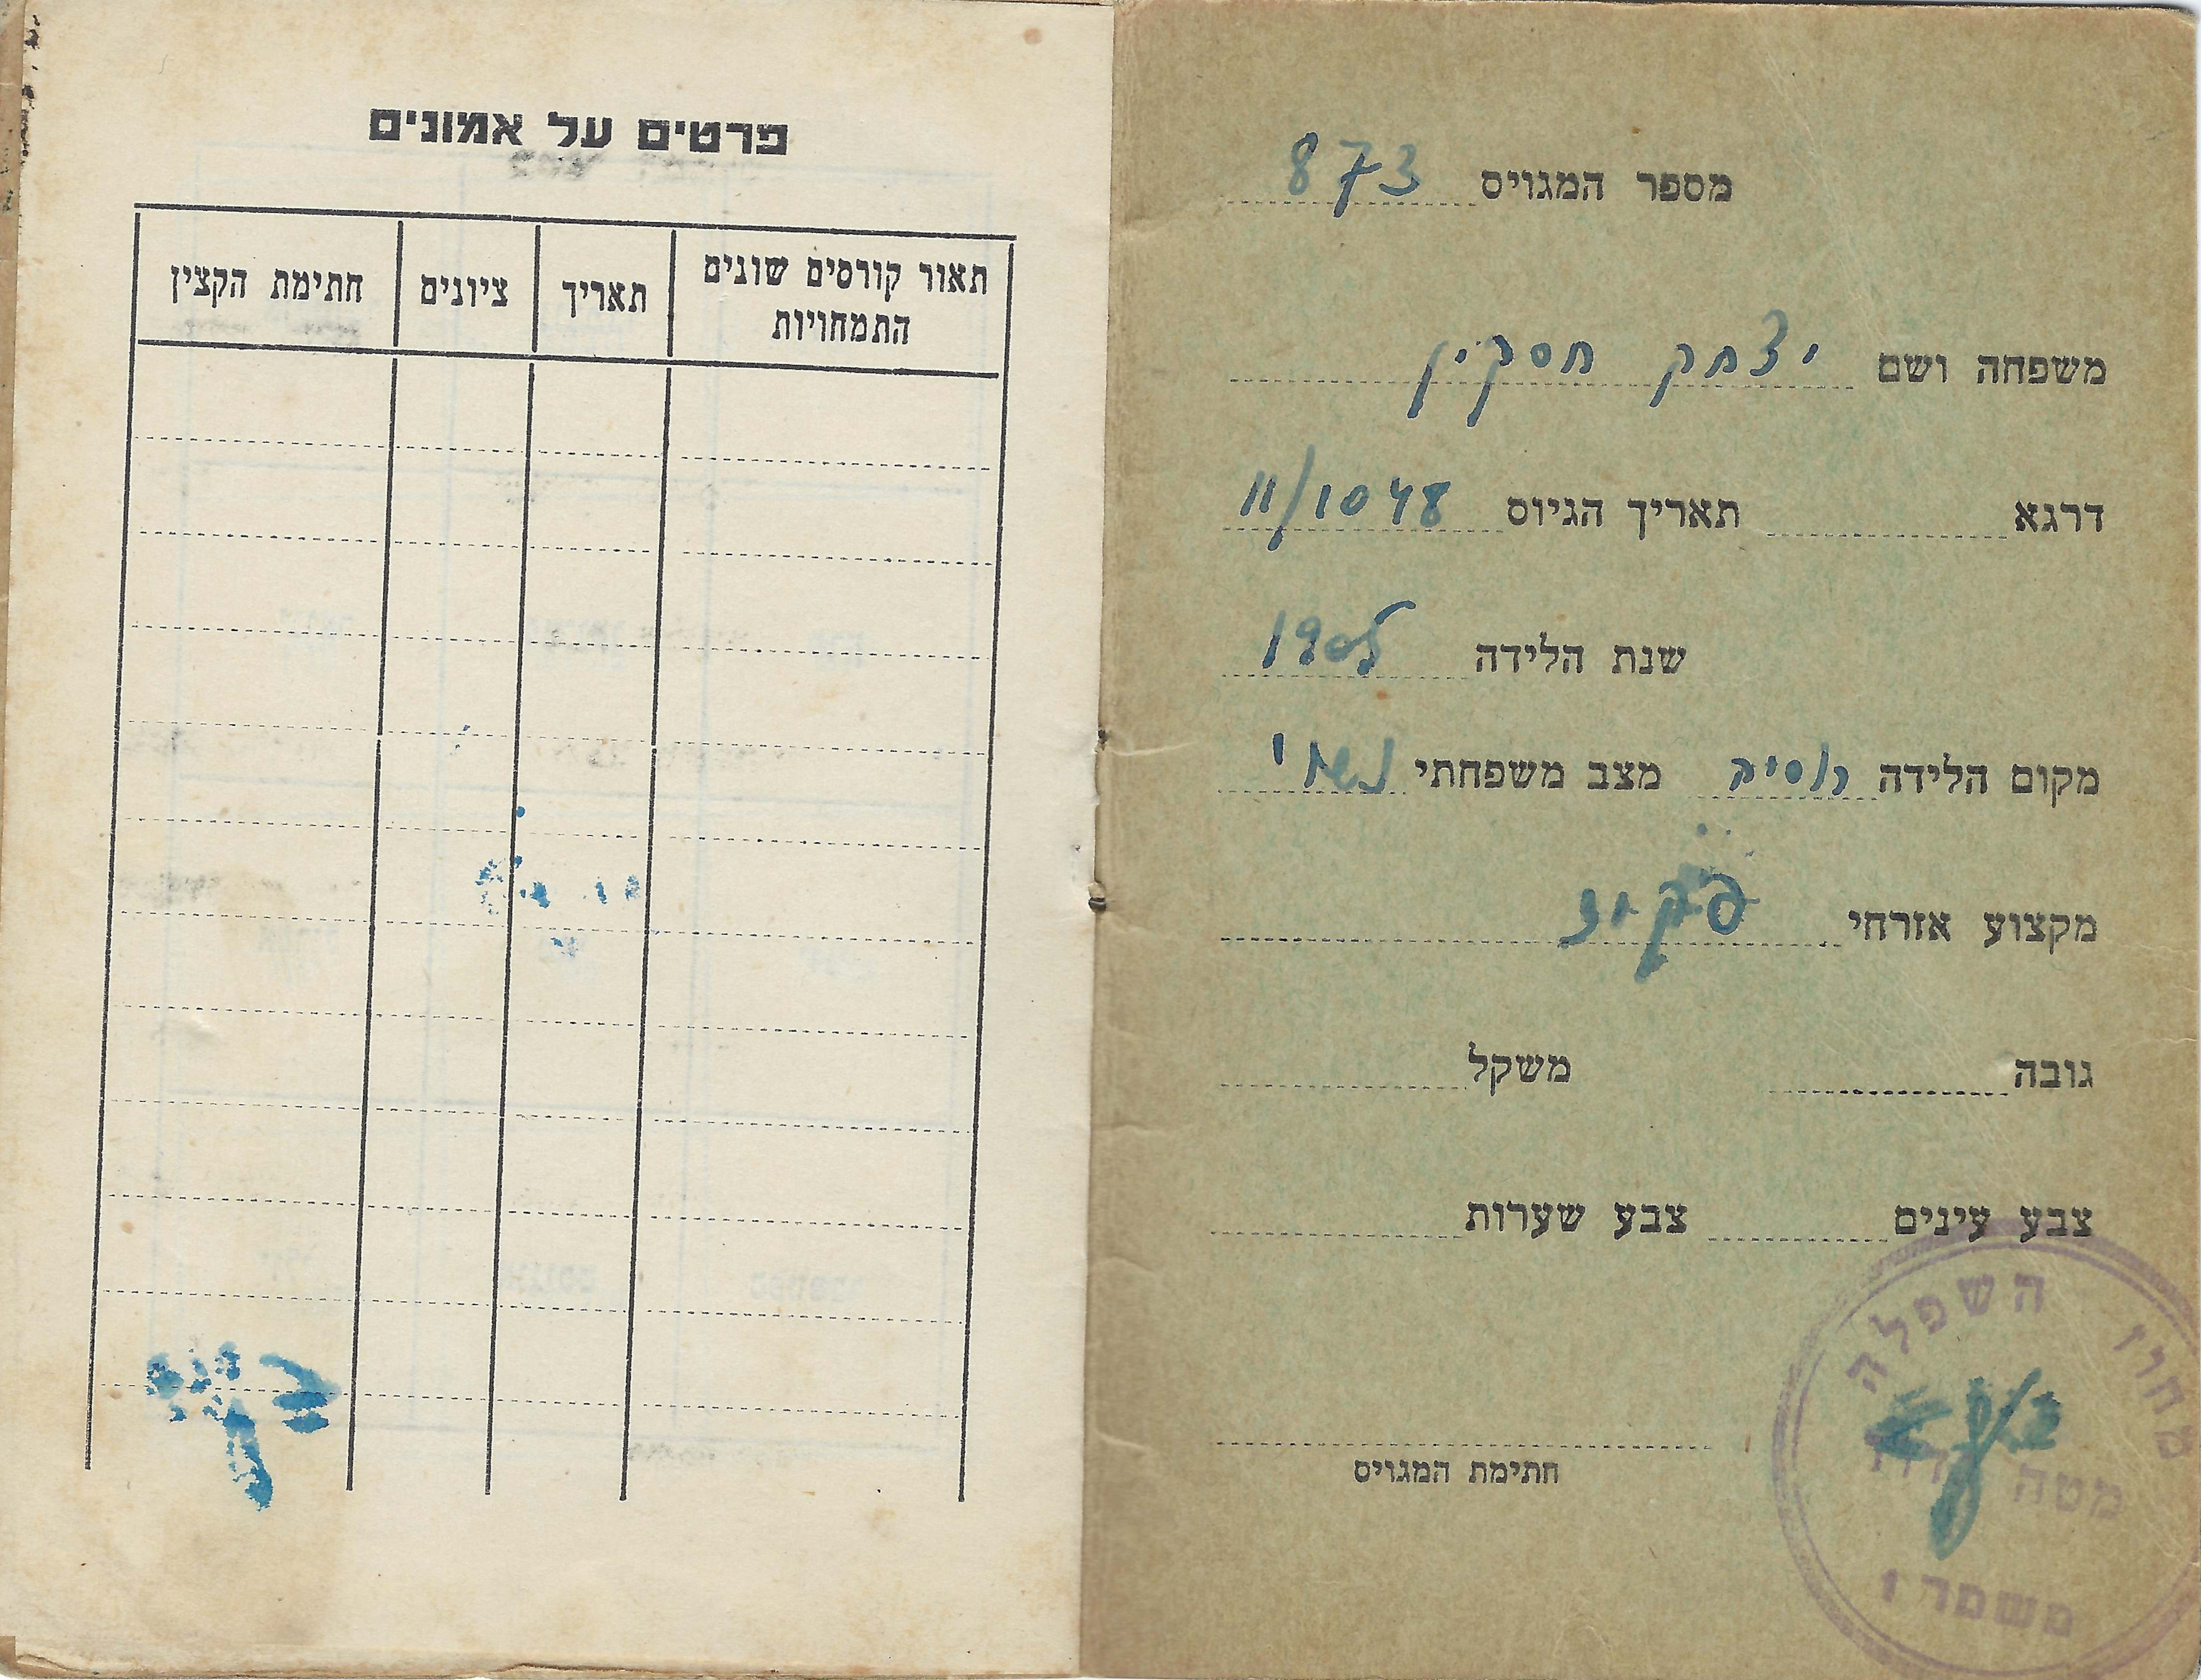 מספר המגויס 873
משפחה ושם יצחק חסקין
דרגא תאריך הגיוס 11/10 48
שנת הלידה 1905
מקום הלידה רוסיה מצב משפחתי נשוי
מקצוע אזרחי פקיד
גובה משקל
צבע עינים צבע שערות
חתימת המגויס
מחוז השפלה
מטה
משמר 1
פרטים על אמונים
תאור קורסים שונים תאריך ציונים חתימת הקצין
התמחויות